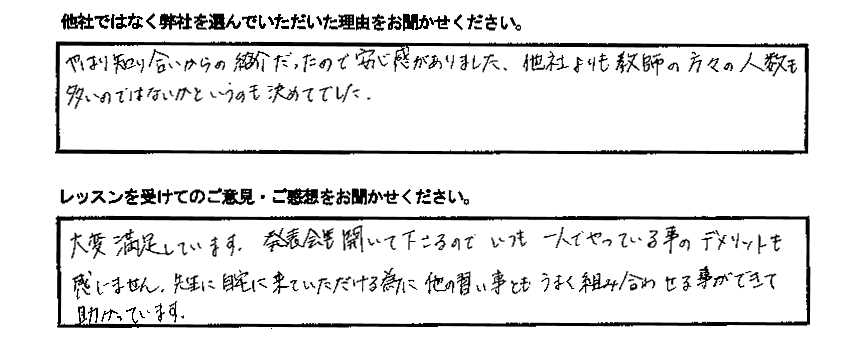 他社ではなく弊社を選んでいただいた理由をお聞かせください。
やはり知り合いからの紹介だったので安心感がありました、他社よりも教師の方々の人数も
多いのではないかというのも決めてでした.
レッスンを受けてのご意見・ご感想をお聞かせください。
大変満足しています. 発表会も開いて下さるので いつも 一人でやっている事のデメリットも
感じません. 先生に自宅に来ていただける為に 他の習い事とも うまく組み合わせる事ができて
助かっています.